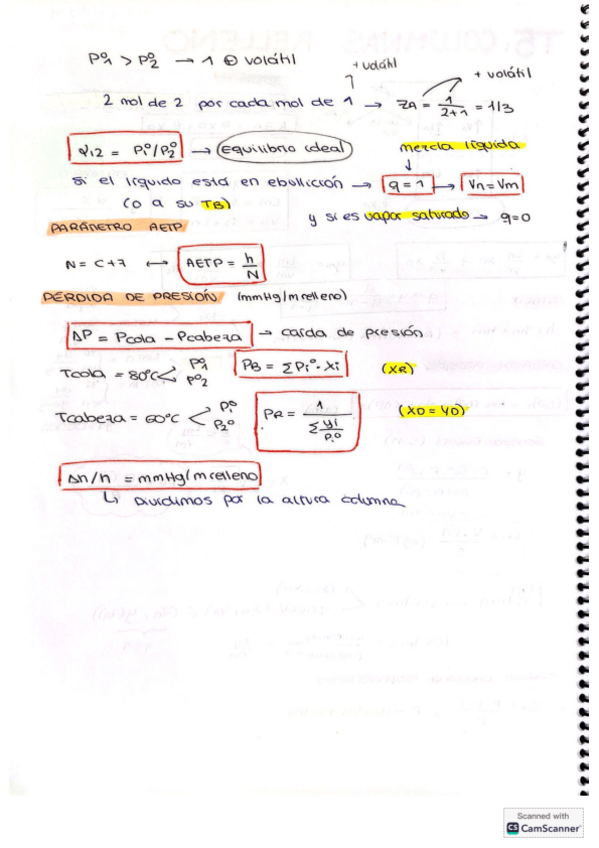 P⁰1 > P⁰2 → 1 ⊕ volátil
+ volátil
+ volátil
2 mol de 2 por cada mol de 1 → ZA = 1/(2+1) = 1/3
α12 = P1⁰/P2⁰ → equilibrio ideal
mezcla líquida
si el líquido está en ebullición → q = 1 → Vn = Vm
(o a su TB) y si es vapor saturado → q=0
PARÁMETRO AETP
N = C+7 ↔ AETP = h/N
PÉRDIDA DE PRESIÓN (mmHg/m relleno)
ΔP = Pcola - Pcabeza → caída de presión
Tcola = 80ºC < P⁰1 P⁰2 PB = ΣPi⁰ · Xi (XR)
Tcabeza = 60ºC < P1⁰ P2⁰ PR = 1/(Σ yi/Pi⁰) (XD = YD)
Δn/h = mmHg/m relleno
↳ Dividimos por la altura columna
Scanned with
CS CamScanner